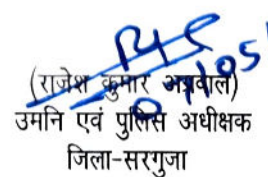 (राजेश कुमार अग्रवाल)
उमनि एवं पुलिस अधीक्षक
जिला-सरगुजा